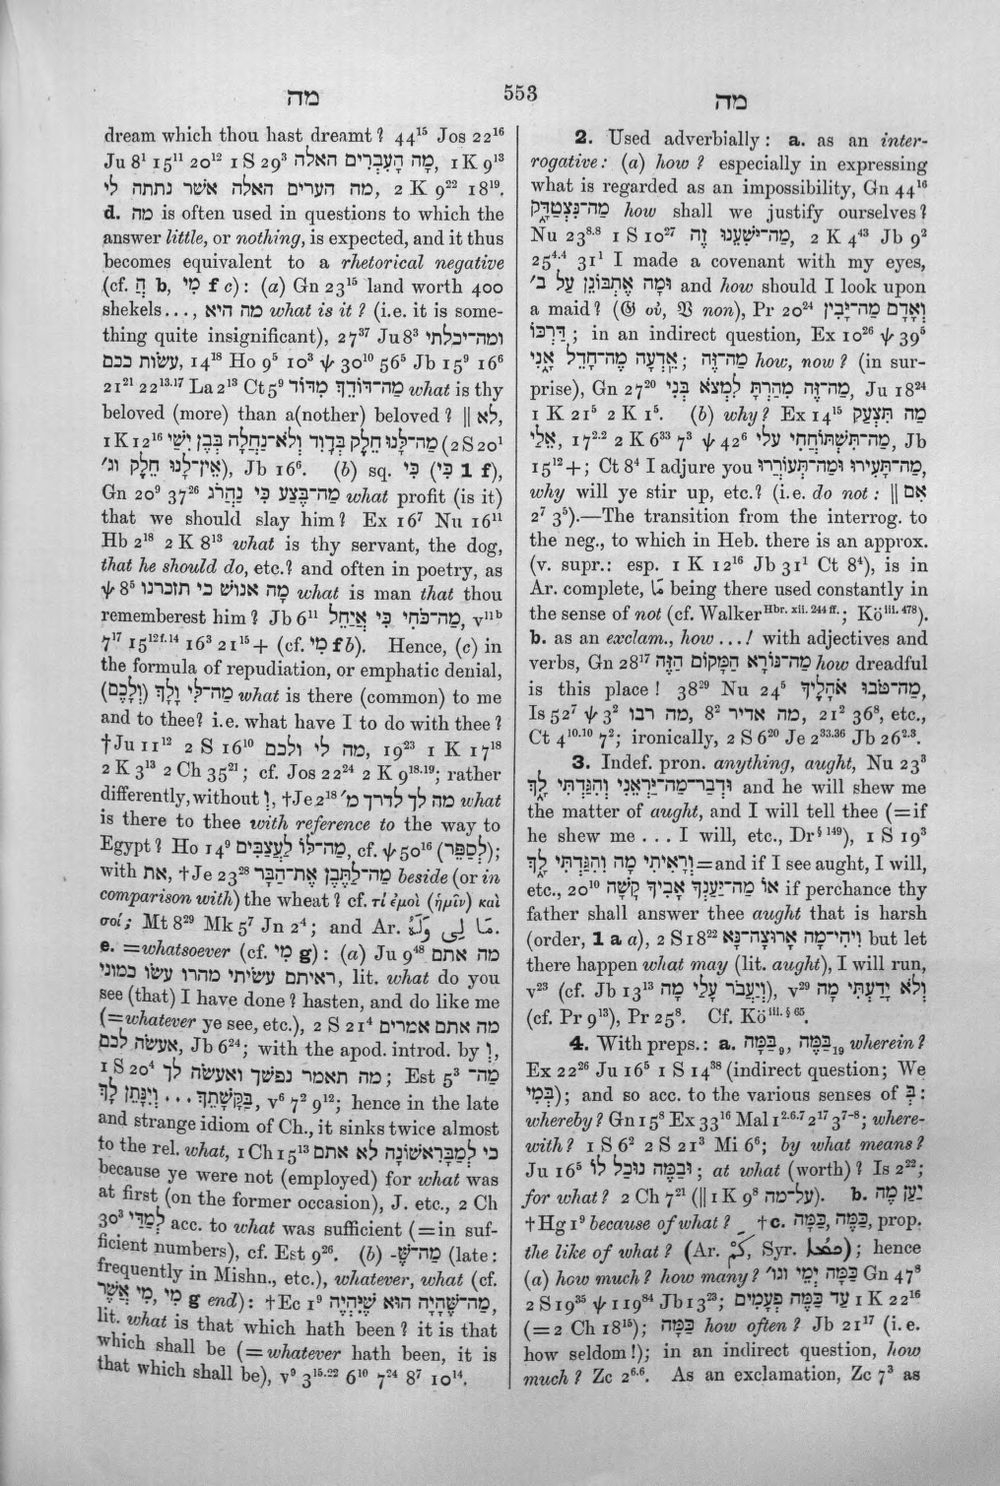 מה 553 מה
dream which thou hast dreamt? 44¹⁵ Jos 22¹⁶
Ju 8¹ 15¹¹ 20¹² 1 S 29³ מָה הָעִבְרִים האלה, 1 K 9¹³
מה הערים האלה אשר נתתה לי, 2 K 9²² 18¹⁹.
d. מה is often used in questions to which the
answer little, or nothing, is expected, and it thus
becomes equivalent to a rhetorical negative
(cf. הֲ b, מִי f c): (a) Gn 23¹⁵ land worth 400
shekels..., מה היא what is it? (i.e. it is some-
thing quite insignificant), 27³⁷ Ju 8³ ומה־יכלתי
עשׂות ככם, 14¹⁸ Ho 9⁵ 10³ ψ 30¹⁰ 56⁵ Jb 15⁹ 16⁶
21²¹ 22¹³·¹⁷ La 2¹³ Ct 5⁹ מַה־דּוֹדֵךְ מִדּוֹד what is thy
beloved (more) than a(nother) beloved? ‖ לֹא,
1 K 12¹⁶ מַה־לָּנוּ חֵלֶק בְּדָוִד וְלֹא־נַחֲלָה בְּבֶן יִשַׁי (2 S 20¹
אֵין־לָנוּ חֵלֶק וג׳), Jb 16⁶. (b) sq. כִּי (כִּי 1 f),
Gn 20⁹ 37²⁶ מַה־בֶּצַע כִּי נַהֲרֹג what profit (is it)
that we should slay him? Ex 16⁷ Nu 16¹¹
Hb 2¹⁸ 2 K 8¹³ what is thy servant, the dog,
that he should do, etc.? and often in poetry, as
ψ 8⁵ מָה אנושׁ כי תזכרנו what is man that thou
rememberest him? Jb 6¹¹ מַה־כֹּחִי כִּי אֲיַחֵל, v¹¹ᵇ
7¹⁷ 15¹²ᶠ·¹⁴ 16³ 21¹⁵+ (cf. מִי f b). Hence, (c) in
the formula of repudiation, or emphatic denial,
מַה־לִּי וָלָךְ (וְלָכֶם) what is there (common) to me
and to thee? i.e. what have I to do with thee?
†Ju 11¹² 2 S 16¹⁰ מה לי ולכם, 19²³ 1 K 17¹⁸
2 K 3¹³ 2 Ch 35²¹; cf. Jos 22²⁴ 2 K 9¹⁸·¹⁹; rather
differently, without וְ, †Je 2¹⁸ מה לך לדרך מ׳ what
is there to thee with reference to the way to
Egypt? Ho 14⁹ מַה־לּוֹ לָעֲצַבִּים, cf. ψ 50¹⁶ (לְסַפֵּר);
with את, †Je 23²⁸ מַה־לַתֶּבֶן אֶת־הַבָּר beside (or in
comparison with) the wheat? cf. τί ἐμοὶ (ἡμῖν) καὶ
σοί; Mt 8²⁹ Mk 5⁷ Jn 2⁴; and Ar. مَا لِى وَلَهُ.
e. =whatsoever (cf. מִי g): (a) Ju 9⁴⁸ מה אתם
ראיתם עשׂיתי מהרו עשׂו כמוני, lit. what do you
see (that) I have done? hasten, and do like me
(=whatever ye see, etc.), 2 S 21⁴ מה אתם אמרים
אעשׂה לכם, Jb 6²⁴; with the apod. introd. by וְ,
1 S 20⁴ מה תאמר נפשׁך ואעשׂה לך; Est 5³ מַה־
בַּקָּשָׁתֵךְ ... וְיִנָּתֵן לָךְ, v⁶ 7² 9¹²; hence in the late
and strange idiom of Ch., it sinks twice almost
to the rel. what, 1 Ch 15¹³ כי לְמַבָּרִאשׁוֹנָה לֹא אתם
because ye were not (employed) for what was
at first (on the former occasion), J. etc., 2 Ch
30³ לְמַדַּי acc. to what was sufficient (=in suf-
ficient numbers), cf. Est 9²⁶. (b) מַה־שֶּׁ־ (late:
frequently in Mishn., etc.), whatever, what (cf.
מִי, מִי אֲשֶׁר g end): †Ec 1⁹ מַה־שֶּׁהָיָה הוּא שֶׁיִּהְיֶה,
lit. what is that which hath been? it is that
which shall be (=whatever hath been, it is
that which shall be), v⁹ 3¹⁵·²² 6¹⁰ 7²⁴ 8⁷ 10¹⁴.
2. Used adverbially: a. as an inter-
rogative: (a) how? especially in expressing
what is regarded as an impossibility, Gn 44¹⁶
מַה־נִּצְטַדָּק how shall we justify ourselves?
Nu 23⁸·⁸ 1 S 10²⁷ מַה־יֹּשִׁעֵנוּ זֶה, 2 K 4⁴³ Jb 9²
25⁴·⁴ 31¹ I made a covenant with my eyes,
וּמָה אֶתְבּוֹנֵן עַל ב׳ and how should I look upon
a maid? (𝔊 οὐ, 𝔙 non), Pr 20²⁴ וְאָדָם מַה־יָּבִין
דַּרְכּוֹ; in an indirect question, Ex 10²⁶ ψ 39⁵
אֵדְעָה מֶה־חָדֵל אָנִי; מַה־זֶּה how, now? (in sur-
prise), Gn 27²⁰ מַה־זֶּה מִהַרְתָּ לִמְצֹא בְּנִי, Ju 18²⁴
1 K 21⁵ 2 K 1⁵. (b) why? Ex 14¹⁵ מַה תִּצְעַק
אֵלַי, 17²·² 2 K 6³³ 7³ ψ 42⁶ מַה־תִּשְׁתּוֹחֲחִי עלי, Jb
15¹²+; Ct 8⁴ I adjure you מַה־תָּעִירוּ וּמַה־תְּעוֹרֲרוּ,
why will ye stir up, etc.? (i.e. do not: ‖ אִם
2⁷ 3⁵).—The transition from the interrog. to
the neg., to which in Heb. there is an approx.
(v. supr.: esp. 1 K 12¹⁶ Jb 31¹ Ct 8⁴), is in
Ar. complete, مَا being there used constantly in
the sense of not (cf. Walker Hbr. xii. 244 ff.; Kö iii. 478).
b. as an exclam., how...! with adjectives and
verbs, Gn 28¹⁷ מַה־נּוֹרָא הַמָּקוֹם הַזֶּה how dreadful
is this place! 38²⁹ Nu 24⁵ מַה־טֹּבוּ אֹהָלֶיךָ,
Is 52⁷ ψ 3² מה רבו, 8² מה אדיר, 21² 36⁸, etc.,
Ct 4¹⁰·¹⁰ 7²; ironically, 2 S 6²⁰ Je 2³³·³⁶ Jb 26²·³.
3. Indef. pron. anything, aught, Nu 23³
וּדְבַר־מַה־יַּרְאֵנִי וְהִגַּדְתִּי לָךְ and he will shew me
the matter of aught, and I will tell thee (=if
he shew me ... I will, etc., Dr§ 149), 1 S 19³
וְרָאִיתִי מָה וְהִגַּדְתִּי לָךְ=and if I see aught, I will,
etc., 20¹⁰ אוֹ מַה־יַּעַנְךָ אָבִיךָ קָשָׁה if perchance thy
father shall answer thee aught that is harsh
(order, 1 a a), 2 S 18²² וִיהִי־מָה אָרוּצָה־נָּא but let
there happen what may (lit. aught), I will run,
v²³ (cf. Jb 13¹³ וְיַעֲבֹר עָלַי מָה), v²⁹ וְלֹא יָדַעְתִּי מָה
(cf. Pr 9¹³), Pr 25⁸. Cf. Kö iii. § 65.
4. With preps.: a. בַּמָּה₉, בַּמֶּה₁₉ wherein?
Ex 22²⁶ Ju 16⁵ 1 S 14³⁸ (indirect question; We
בְּמִי); and so acc. to the various senses of בְּ:
whereby? Gn 15⁸ Ex 33¹⁶ Mal 1²·⁶·⁷ 2¹⁷ 3⁷⁻⁸; where-
with? 1 S 6² 2 S 21³ Mi 6⁶; by what means?
Ju 16⁵ וּבַמֶּה נוּכַל לוֹ; at what (worth)? Is 2²²;
for what? 2 Ch 7²¹ (‖ 1 K 9⁸ על־מה). b. יַעַן מֶה
†Hg 1⁹ because of what? †c. כַּמָּה, כַּמֶּה, prop.
the like of what? (Ar. كَمْ, Syr. ܟܡܐ); hence
(a) how much? how many? כַּמָּה יְמֵי וגו׳ Gn 47⁸
2 S 19³⁵ ψ 119⁸⁴ Jb 13²³; עַד כַּמֶּה פְעָמִים 1 K 22¹⁶
(=2 Ch 18¹⁵); כַּמָּה how often? Jb 21¹⁷ (i.e.
how seldom!); in an indirect question, how
much? Zc 2⁶·⁶. As an exclamation, Zc 7³ as